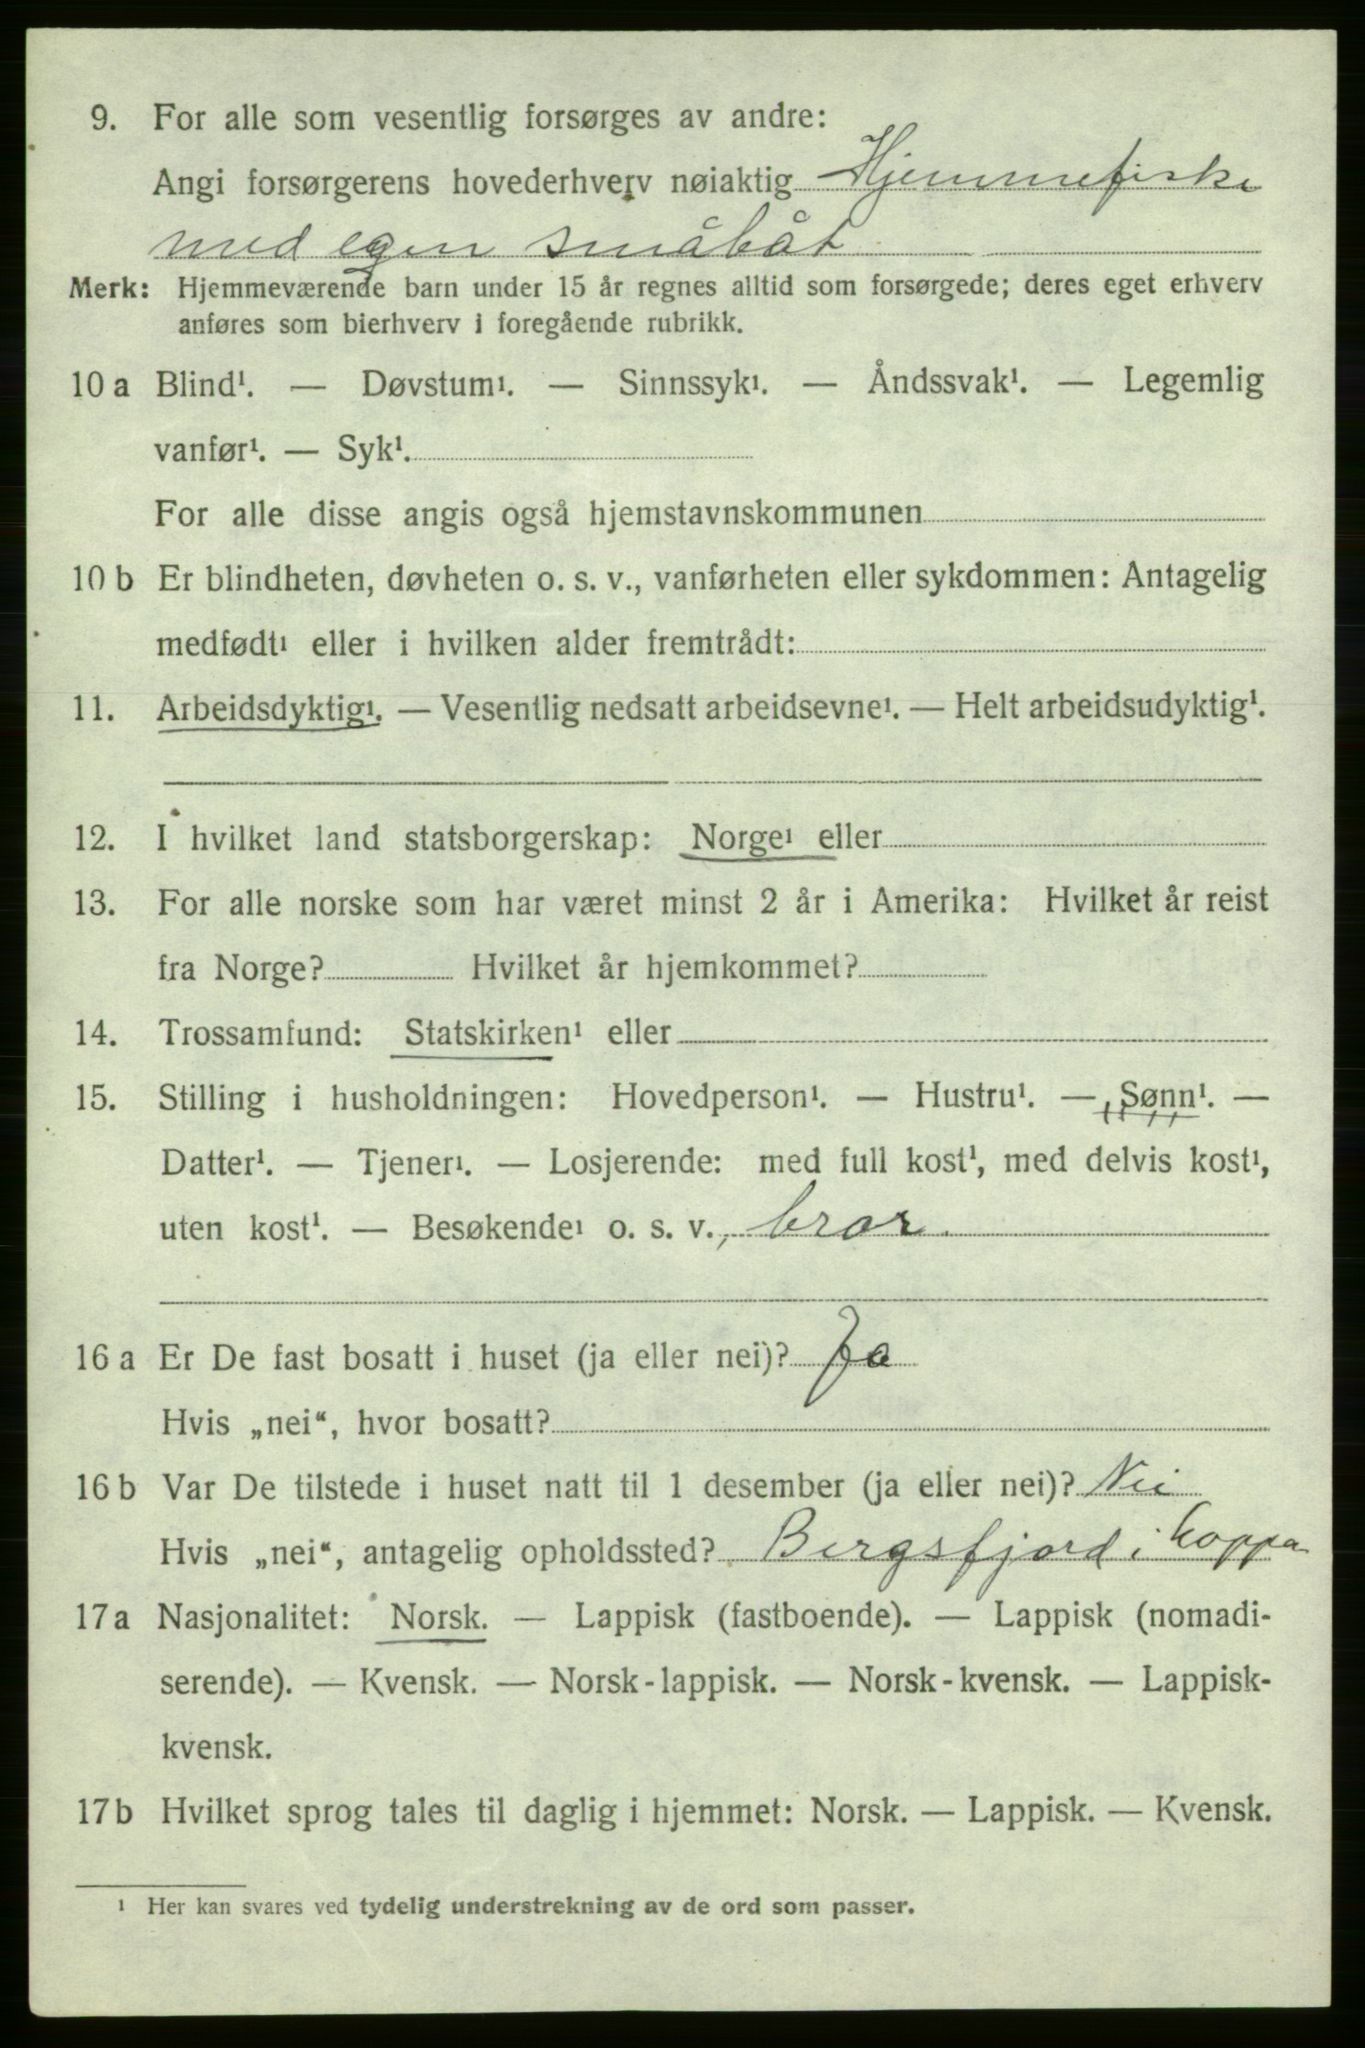 9. For alle som vesentlig forsørges av andre:
Angi forsørgerens hovederhverv nøiaktig Hjemmefiske
med egen småbåt
Merk: Hjemmeværende barn under 15 år regnes alltid som forsørgede; deres eget erhverv
anføres som bierhverv i foregående rubrikk.
10 a Blind¹. — Døvstum¹. — Sinnssyk¹. — Åndssvak¹. — Legemlig
vanfør¹. — Syk¹.
For alle disse angis også hjemstavnskommunen
10 b Er blindheten, døvheten o. s. v., vanførheten eller sykdommen: Antagelig
medfødt¹ eller i hvilken alder fremtrådt:
11. Arbeidsdyktig¹. — Vesentlig nedsatt arbeidsevne¹. — Helt arbeidsudyktig¹.
12. I hvilket land statsborgerskap: Norge¹ eller
13. For alle norske som har været minst 2 år i Amerika: Hvilket år reist
fra Norge? Hvilket år hjemkommet?
14. Trossamfund: Statskirken¹ eller
15. Stilling i husholdningen: Hovedperson¹. — Hustru¹. — Sønn¹. —
Datter¹. — Tjener¹. — Losjerende: med full kost¹, med delvis kost¹,
uten kost¹. — Besøkende¹ o. s. v., bror
16 a Er De fast bosatt i huset (ja eller nei)? Ja
Hvis „nei“, hvor bosatt?
16 b Var De tilstede i huset natt til 1 desember (ja eller nei)? Nei
Hvis „nei“, antagelig opholdssted? Bergsfjord i Loppa
17 a Nasjonalitet: Norsk. — Lappisk (fastboende). — Lappisk (nomadi-
serende). — Kvensk. — Norsk-lappisk. — Norsk-kvensk. — Lappisk-
kvensk.
17 b Hvilket sprog tales til daglig i hjemmet: Norsk. — Lappisk. — Kvensk.
¹ Her kan svares ved tydelig understrekning av de ord som passer.